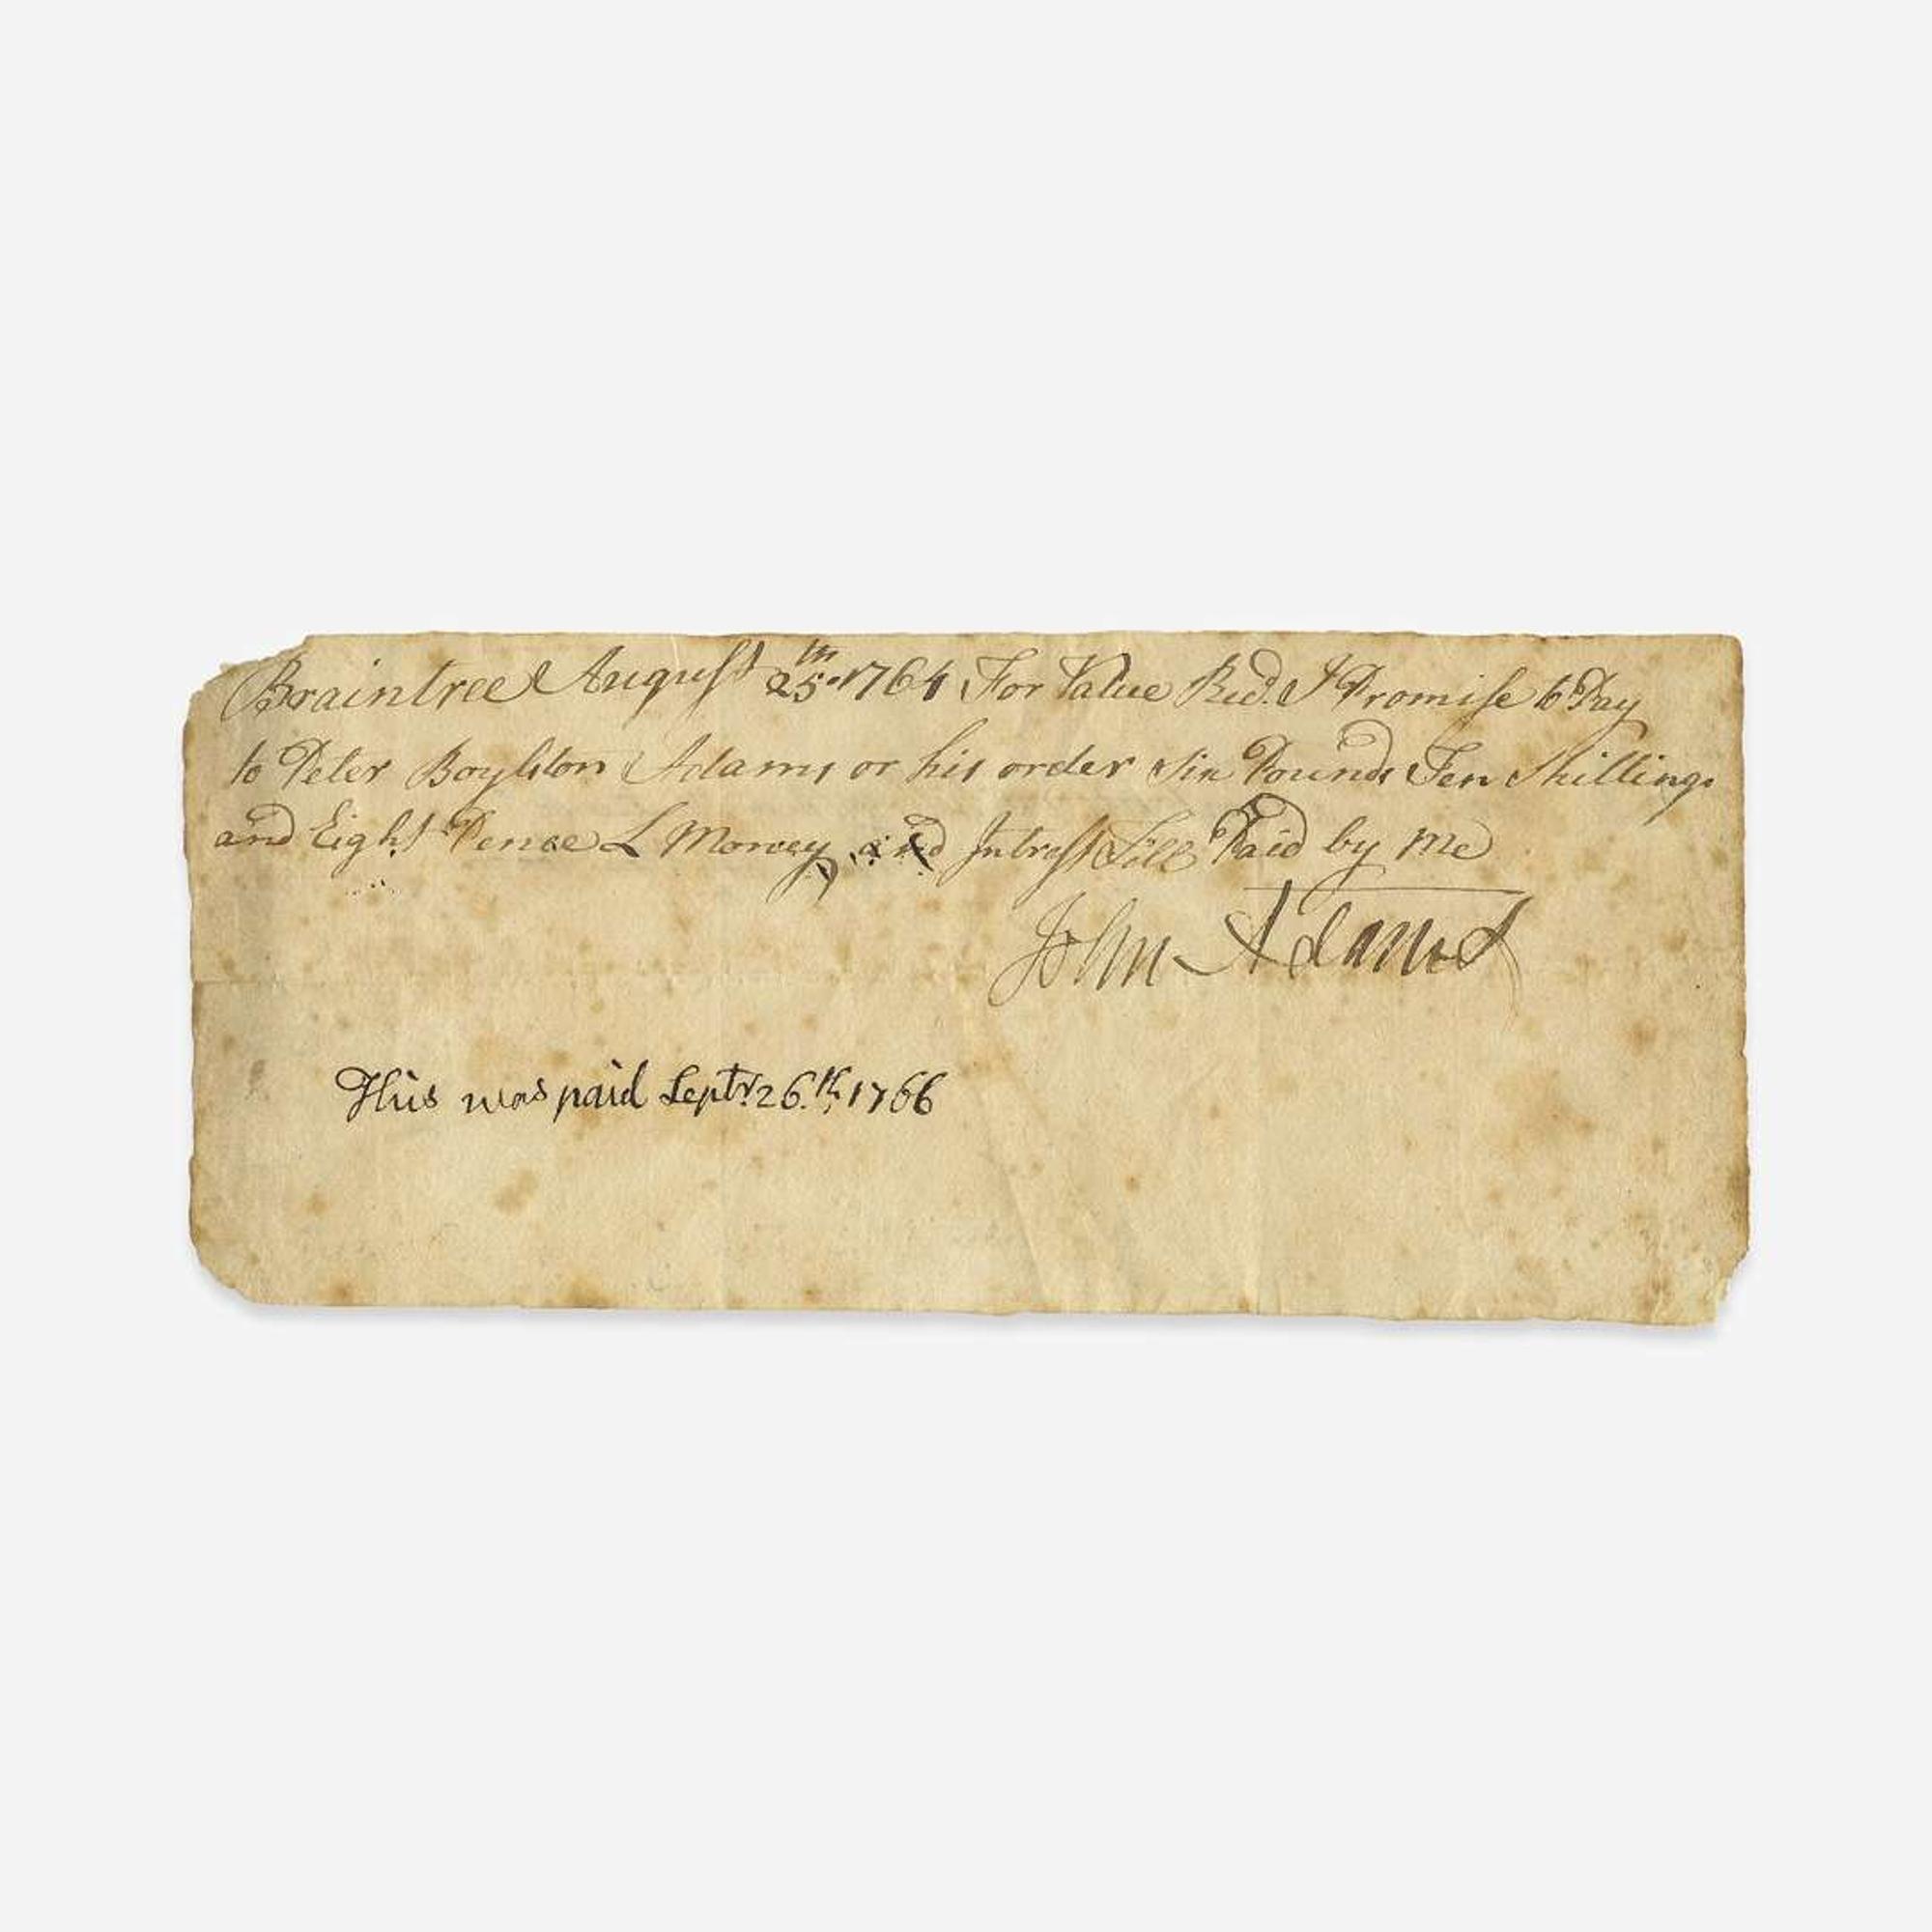 Braintree August 25th 1764 For Value Recd. I Promise to Pay
to Peter Boylston Adams or his order Six Pounds Ten Shillings
and Eight Pence L Money and Intrest Till Paid by me
John Adams
This was paid Septr. 26.th 1766